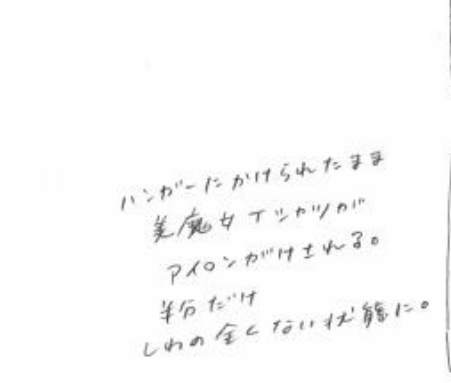 ハンガーにかけられたまま
美魔女Tシャツが
アイロンがけされる。
半分だけ
しわの全くない状態に。